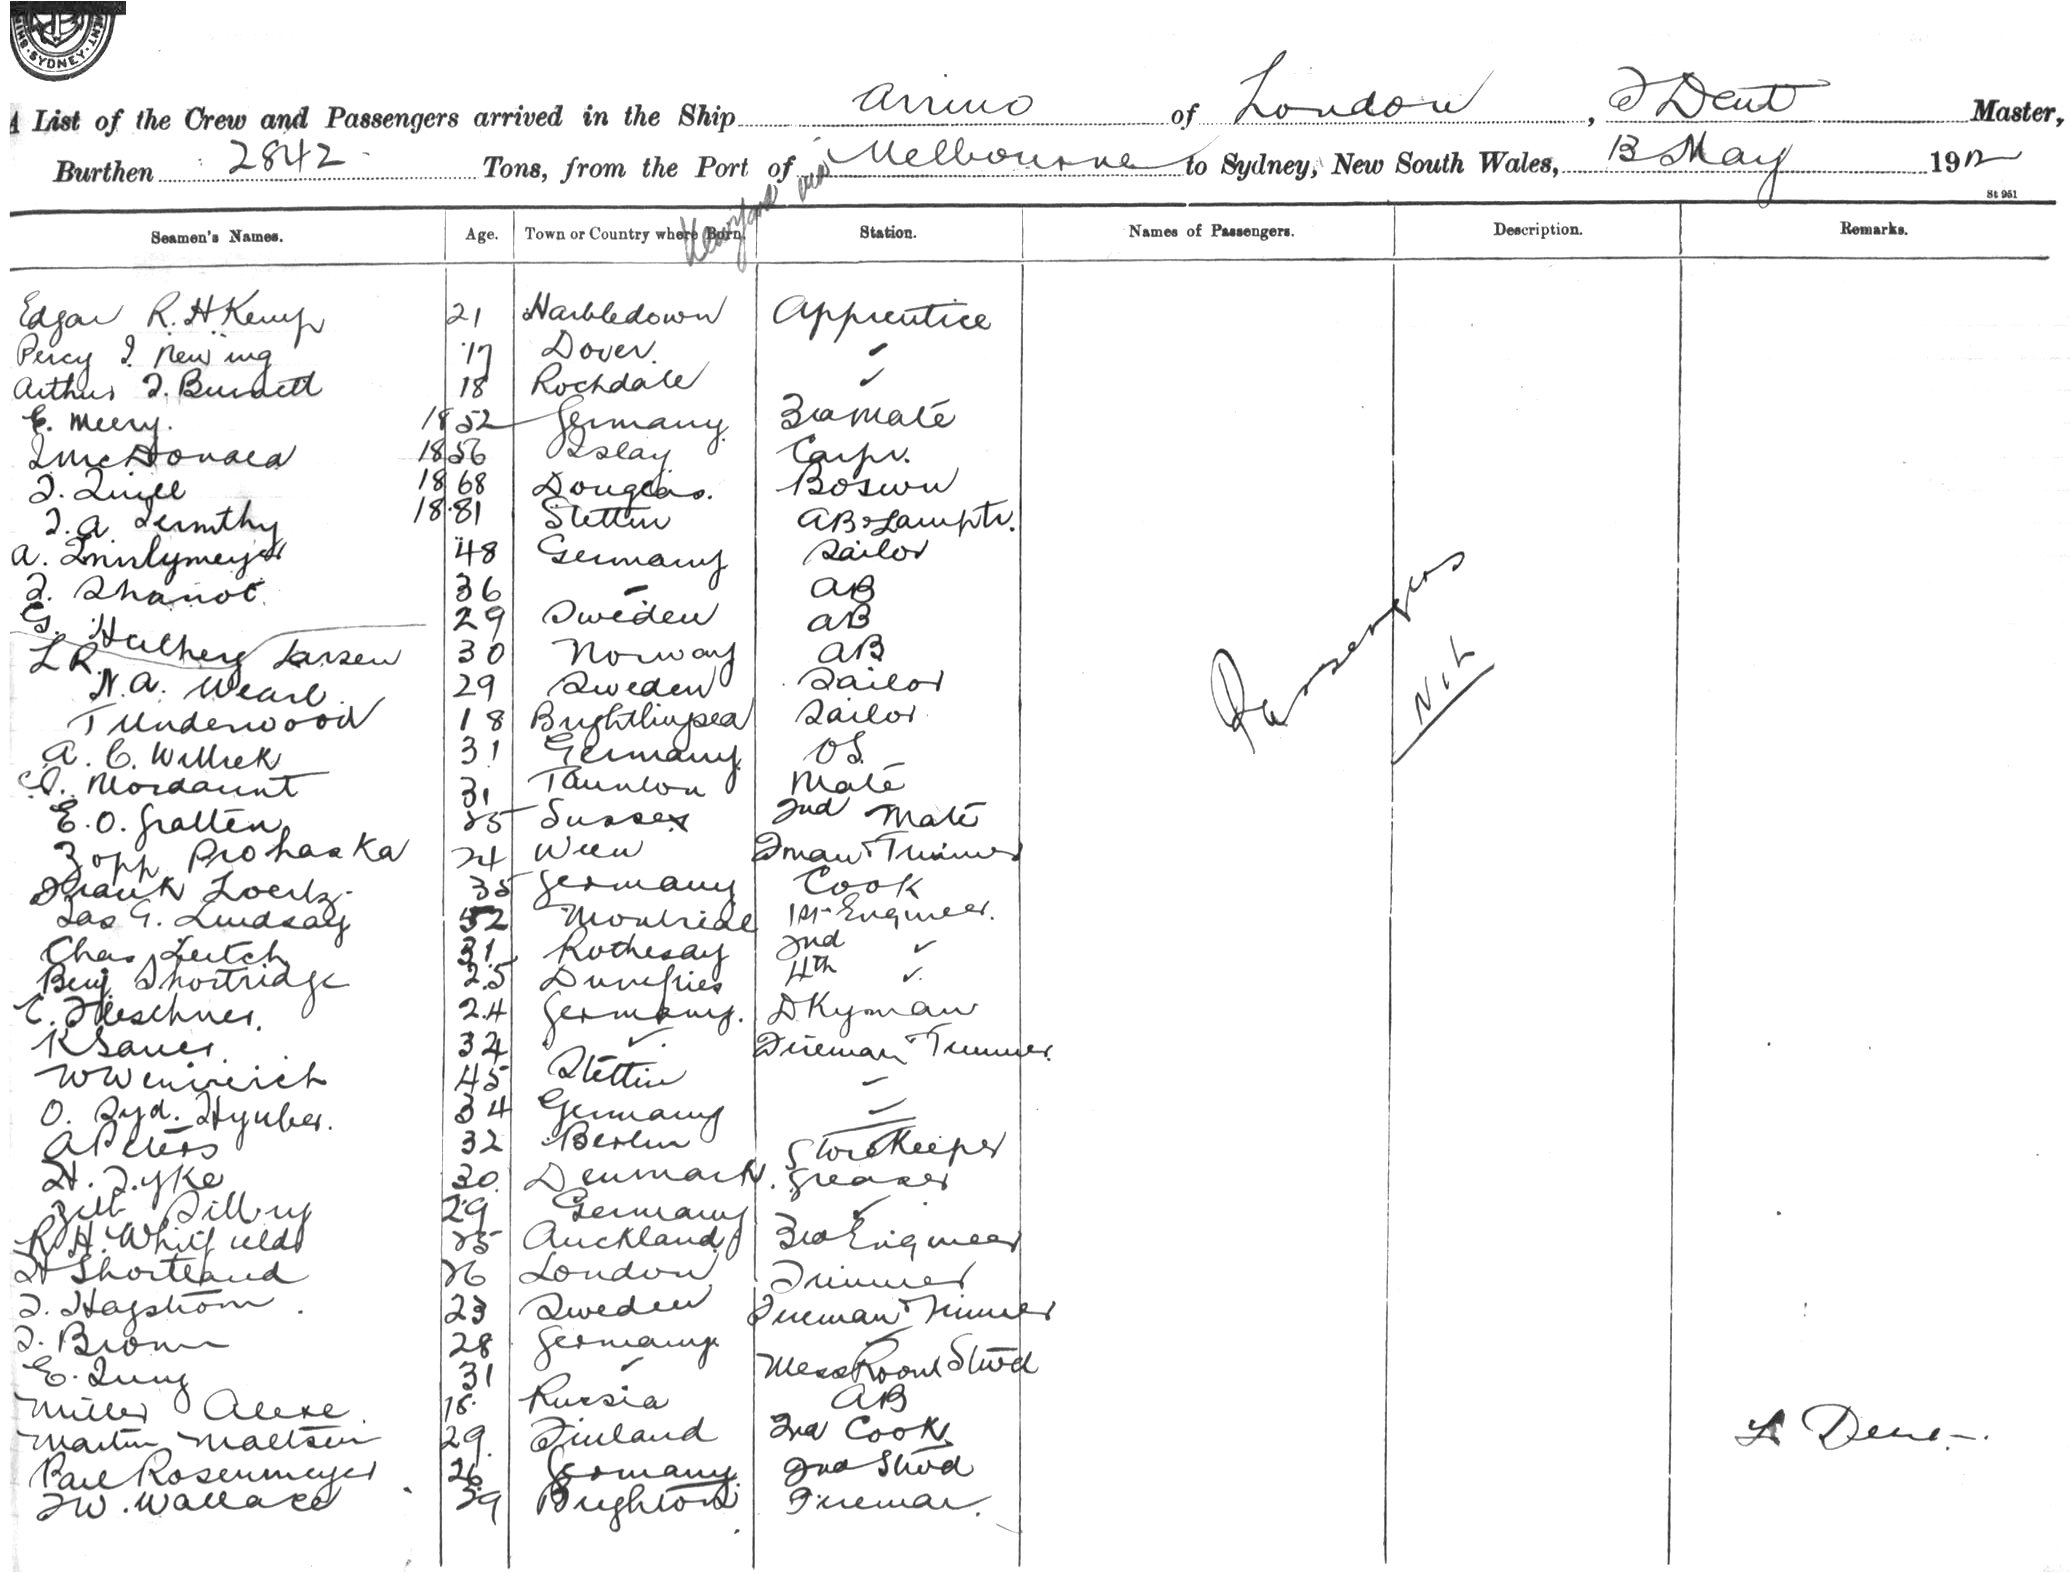 SYDNEY
A List of the Crew and Passengers arrived in the Ship Arrino of London, J Dent Master,
Burthen 2842 Tons, from the Port of Melbourne to Sydney, New South Wales, 13 May 1912
St 951
Seamen's Names. Age. Town or Country where Born. Station. Names of Passengers. Description. Remarks.
Edgar R. H Kemp 21 Harbledown Apprentice
Percy J. Newing 17 Dover. ✓
Arthur J. Burnett 18 Rochdale ✓
E. Meery. 1852 Germany 3rd Mate
J McDonald 1856 Islay Carpr.
J. Quill 1868 Douglas. Boswn
J. A 1881 Stettin AB & Lamptr.
A. 48 Germany Sailor
36 AB
G. Hulberg 29 Sweden AB
L R. Larsen 30 Norway AB
N. A. Wearl 29 Sweden Sailor
T Underwood 18 Brightlingsea Sailor
A. C. Willick 31 Germany OS
Mordaunt 31 Taunton Mate
E. O. Gratten 25 Sussex 2nd Mate
Zopp Prohaska 24 Wien Fman & Trimmer
Frank Loertz 35 Germany Cook
Jas G. Lindsay 52 Montrose 1st Engineer.
Chas Leitch 31 Rothesay 2nd ✓
Benj Shortridge 25 Dumfries 4th ✓
E. Fleschner. 24 Germany. DKyman
K Sauer. 32 ✓ Fireman & Trimmer
W Weinreich 45 Stettin ✓
O. Syd. 34 Germany ✓
A Peters 32 Berlin Storekeeper
H. Fyke 30 Denmark. Greaser
29 Germany ✓
R. H. Whitfield 25 Auckland 3rd Engineer
H Shortland 26 London Trimmer
J. Hagstrom. 23 Sweden Fireman & Trimmer
J. Brown 28 Germany ✓
E. Jung 31 ✓ Mess Room Stwd
Miller Alexe 18 Russia AB
Martin Mattsen 29 Finland 2nd Cook
Paul Rosenmeyer 26 Germany 2nd Stwd
J W. Wallace 29 Brighton Fireman.
Passengers
Nil
Dent